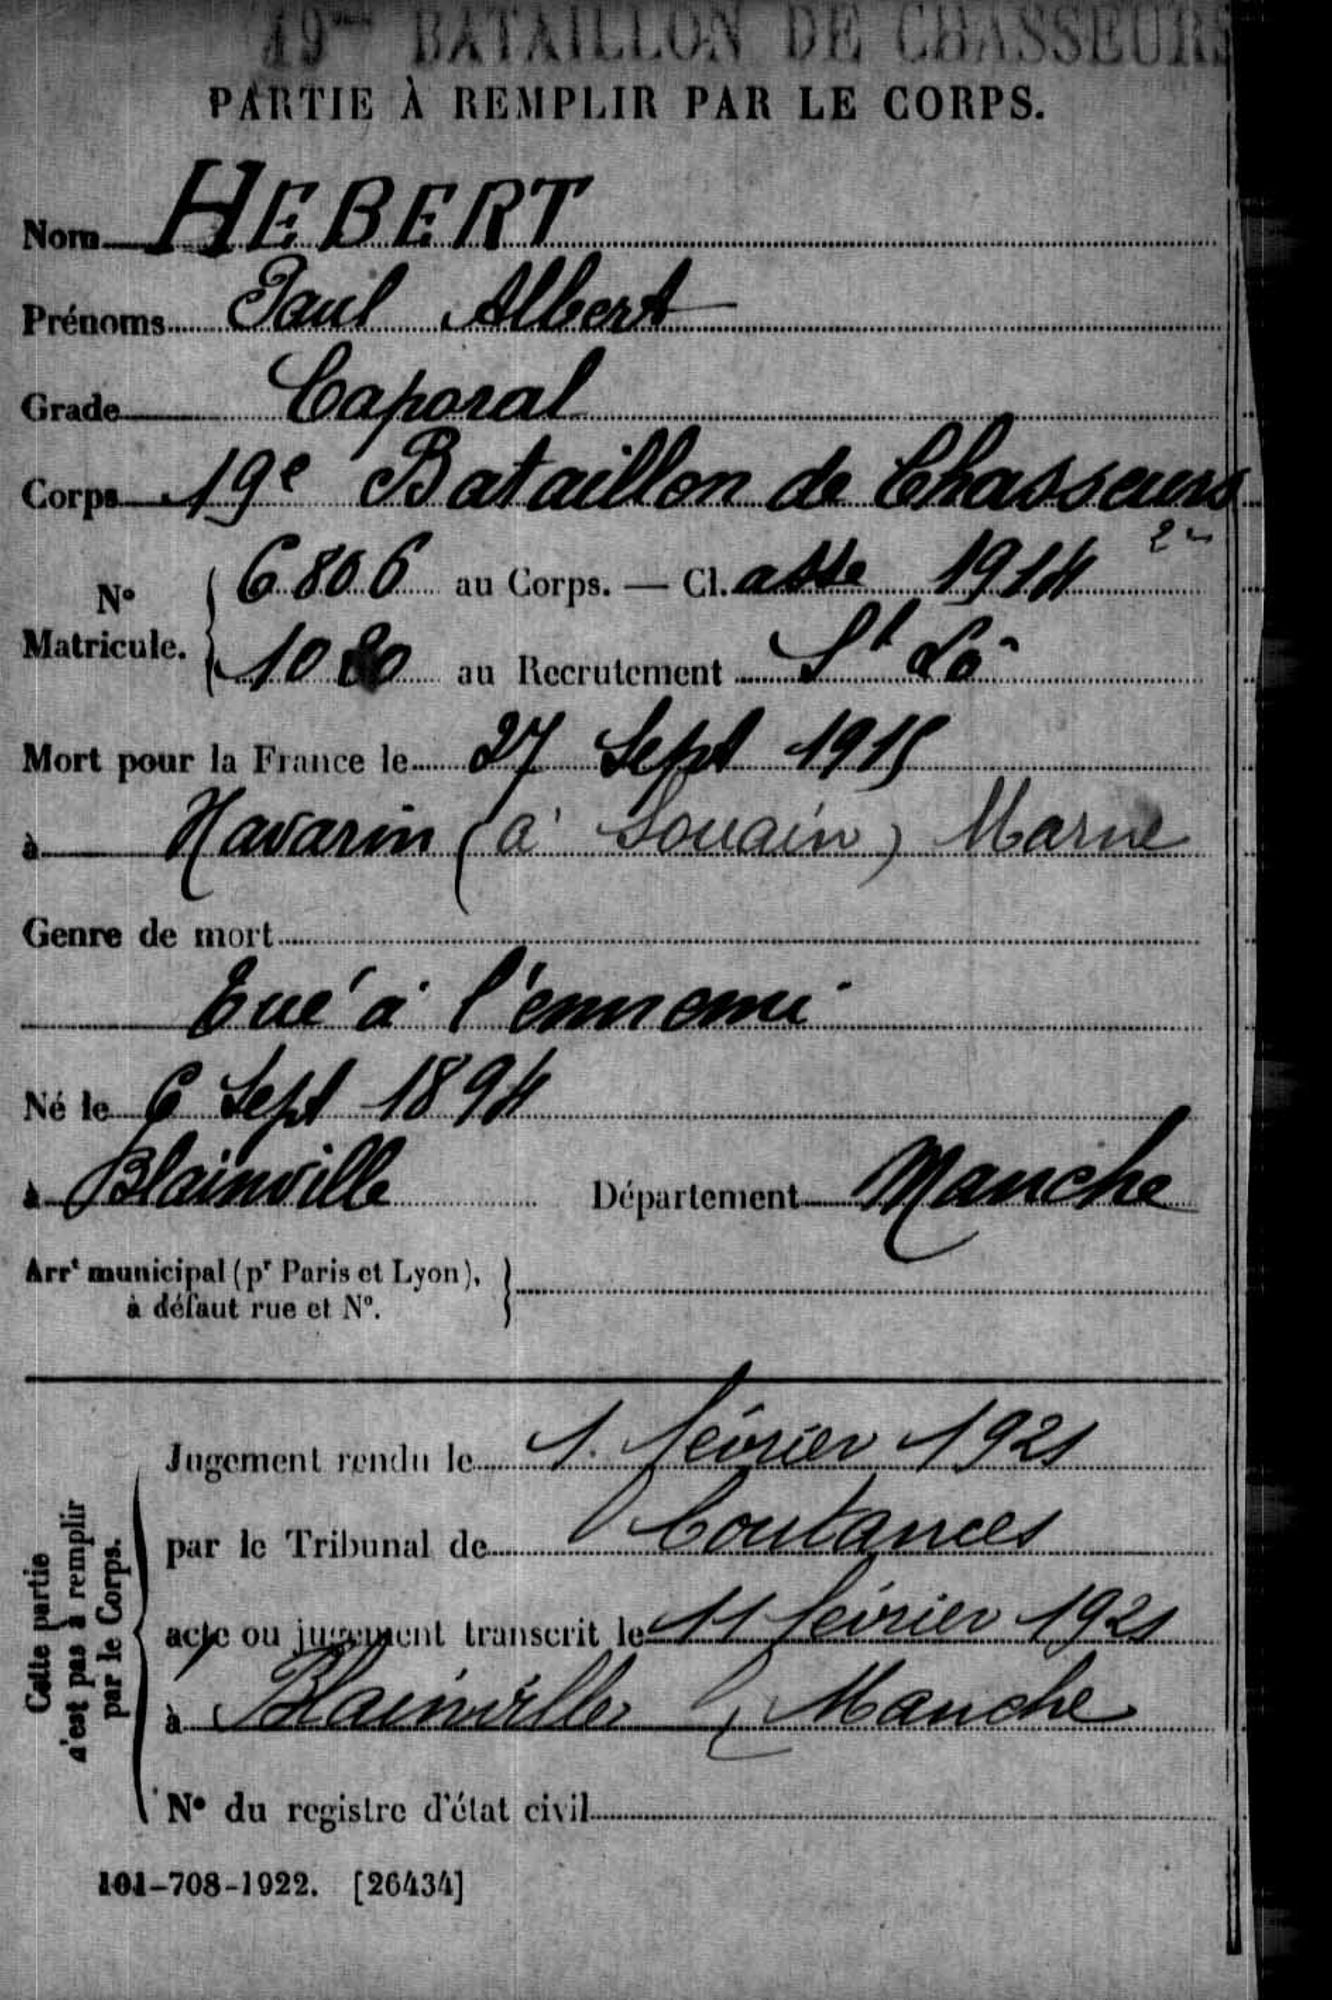 19me BATAILLON DE CHASSEURS
PARTIE À REMPLIR PAR LE CORPS.
Nom HEBERT
Prénoms Paul Albert
Grade Caporal
Corps 19e Bataillon de Chasseurs
N° Matricule. { 6806 au Corps. — Cl. asse 1914
1080 au Recrutement St Lô
Mort pour la France le 27 Sept 1915
à Navarin (à Souain) Marne
Genre de mort
Tué à l'ennemi
Né le 6 Sept 1894
à Blainville Département Manche
Arrt municipal (pr Paris et Lyon), }
à défaut rue et N°.
Cette partie
n'est pas à remplir
par le Corps.
Jugement rendu le 1. février 1921
par le Tribunal de Coutances
acte ou jugement transcrit le 11 février 1921
à Blainville, Manche
N° du registre d'état civil
101-708-1922. [26434]